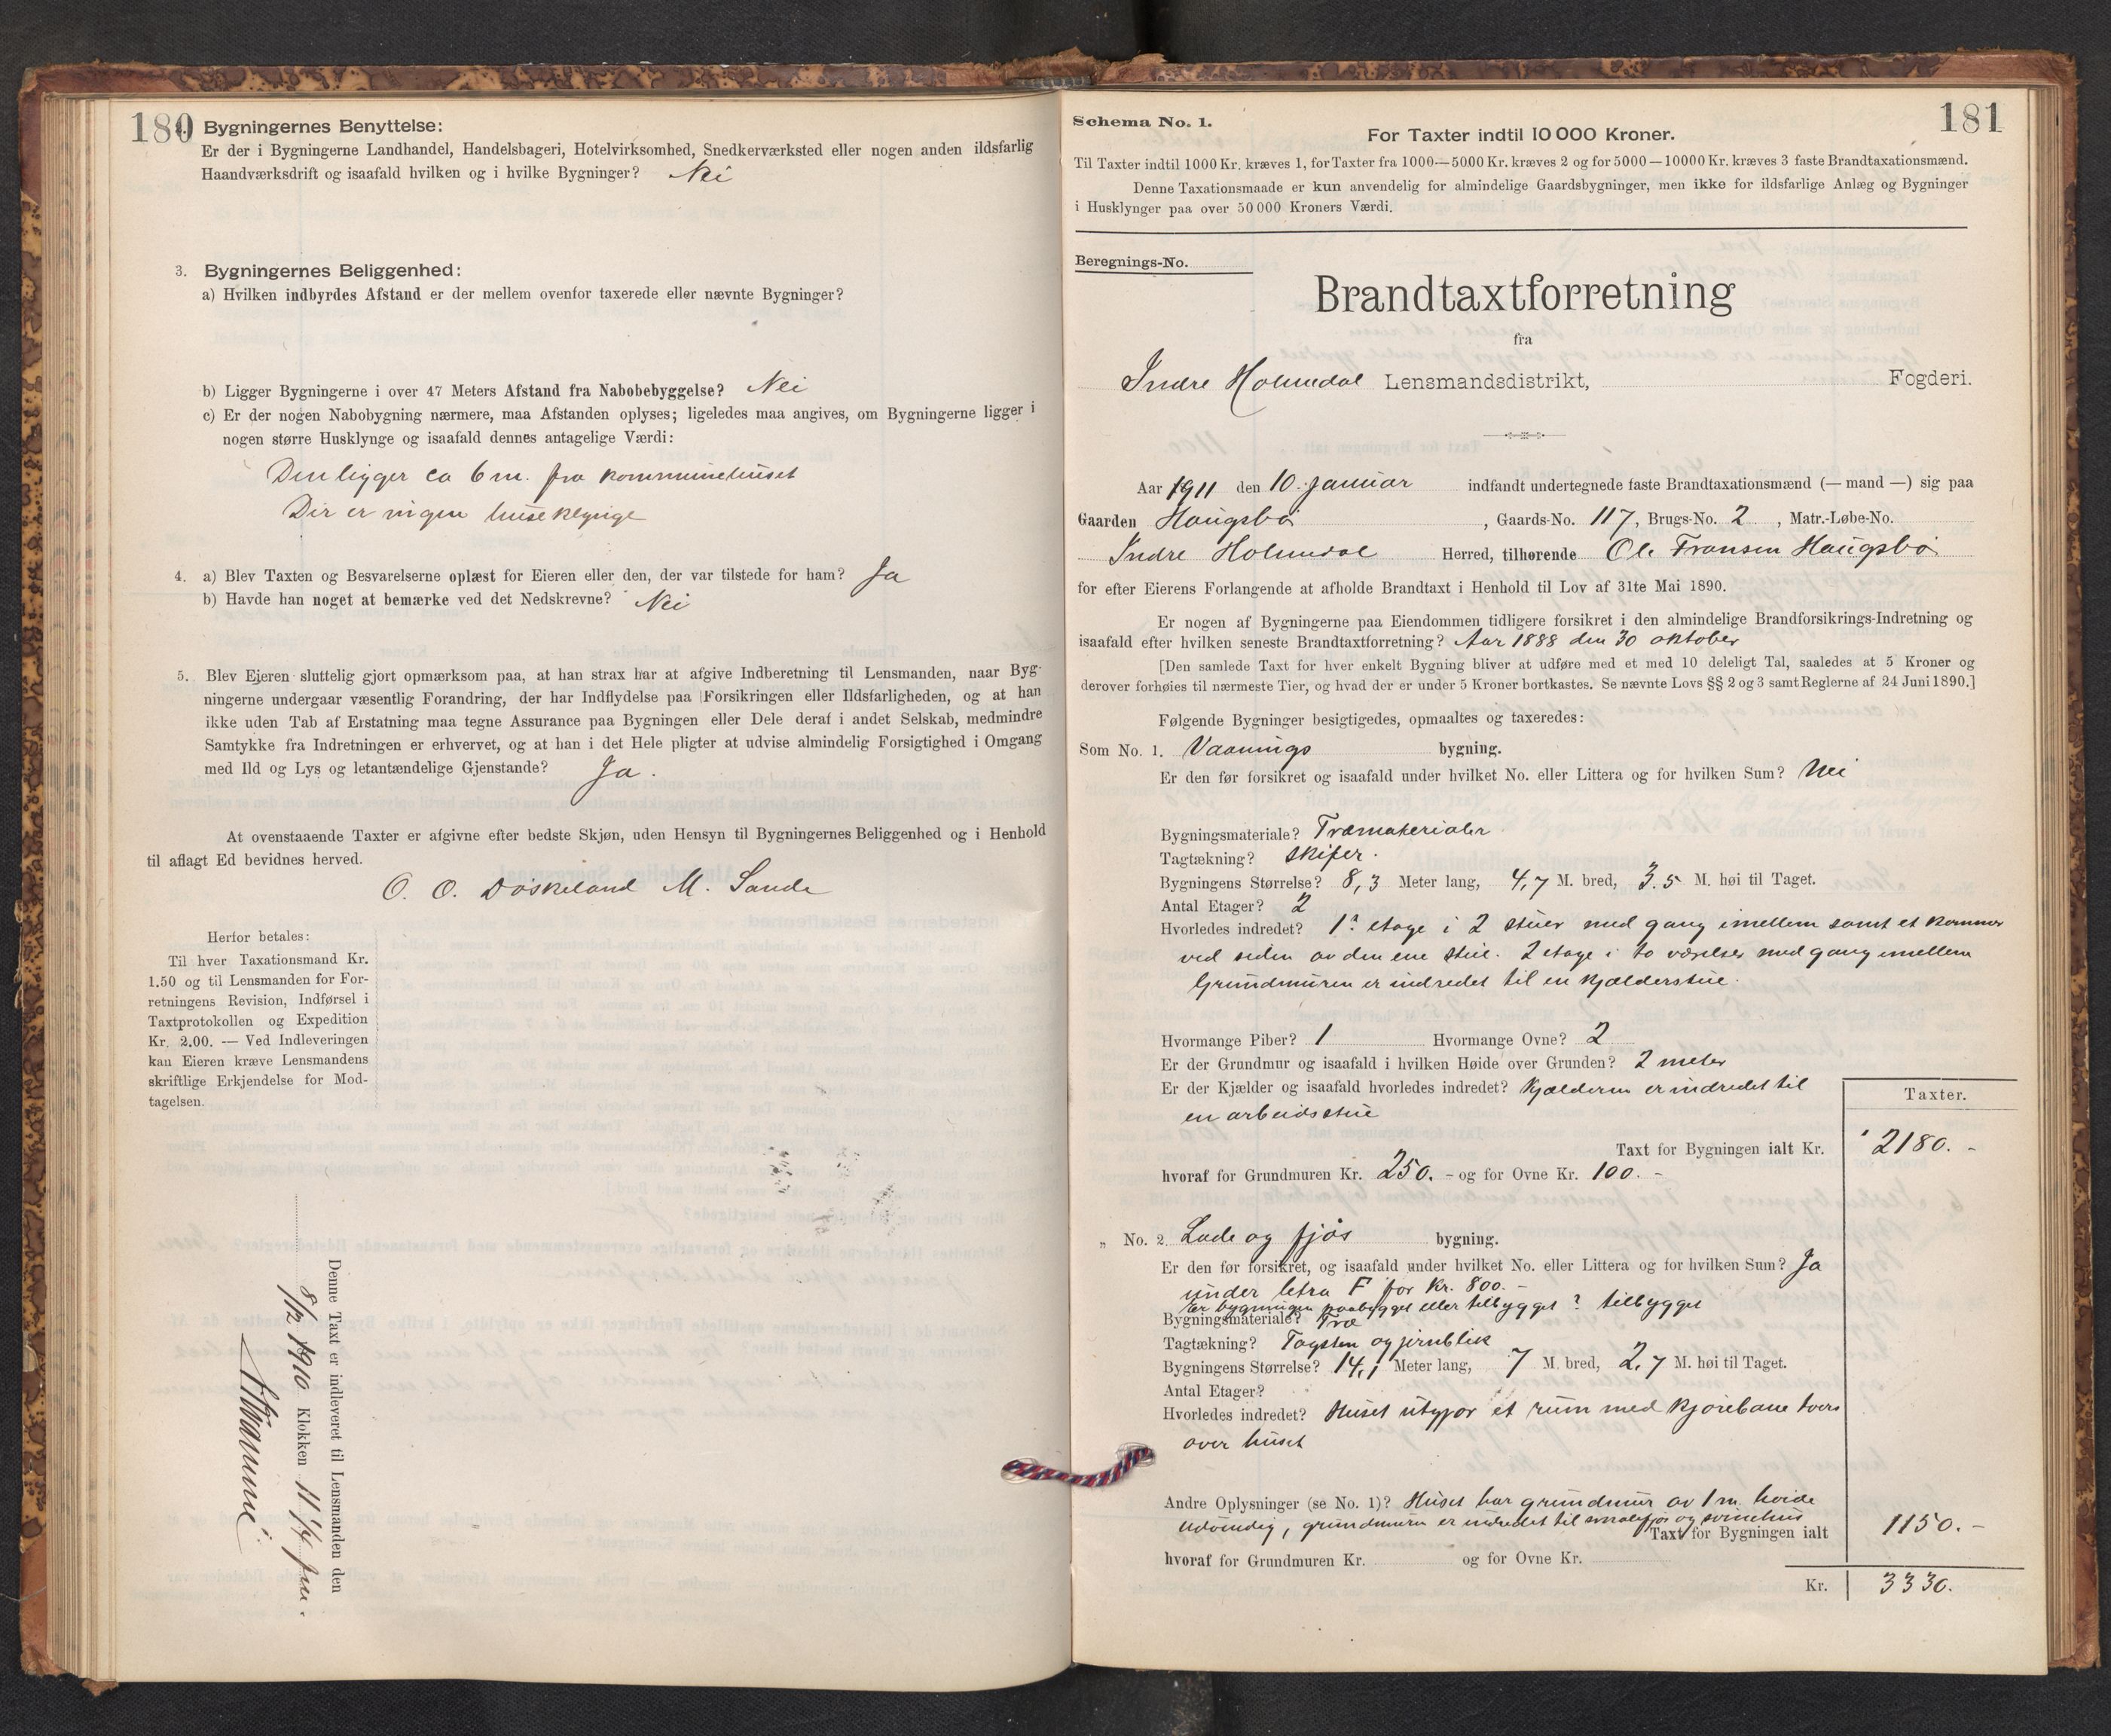 180
Bygningernes Benyttelse:
Er der i Bygningerne Landhandel, Handelsbageri, Hotelvirksomhed, Snedkerværksted eller nogen anden ildsfarlig
Haandværksdrift og isaafald hvilken og i hvilke Bygninger? Nei
3. Bygningernes Beliggenhed:
a) Hvilken indbyrdes Afstand er der mellem ovenfor taxerede eller nævnte Bygninger?
b) Ligger Bygningerne i over 47 Meters Afstand fra Nabobebyggelse? Nei
c) Er der nogen Nabobygning nærmere, maa Afstanden oplyses; ligeledes maa angives, om Bygningerne ligger i
nogen større Husklynge og isaafald dennes antagelige Værdi:
Den ligger ca 6 m. fra kommunehuset
Der er ingen huseklynge
4. a) Blev Taxten og Besvarelserne oplæst for Eieren eller den, der var tilstede for ham? Ja
b) Havde han noget at bemærke ved det Nedskrevne? Nei
5. Blev Ejeren sluttelig gjort opmærksom paa, at han strax har at afgive Indberetning til Lensmanden, naar Byg-
ningerne undergaar væsentlig Forandring, der har Indflydelse paa Forsikringen eller Ildsfarligheden, og at han
ikke uden Tab af Erstatning maa tegne Assurance paa Bygningen eller Dele deraf i andet Selskab, medmindre
Samtykke fra Indretningen er erhvervet, og at han i det Hele pligter at udvise almindelig Forsigtighed i Omgang
med Ild og Lys og letantændelige Gjenstande? Ja.
At ovenstaaende Taxter er afgivne efter bedste Skjøn, uden Hensyn til Bygningernes Beliggenhed og i Henhold
til aflagt Ed bevidnes herved.
O. O. Døskeland M. Sande
Herfor betales:
Til hver Taxationsmand Kr.
1.50 og til Lensmanden for For-
retningens Revision, Indførsel i
Taxtprotokollen og Expedition
Kr. 2.00. — Ved Indleveringen
kan Eieren kræve Lensmandens
skriftlige Erkjendelse for Mod-
tagelsen.
Denne Taxt er indleveret til Lensmanden den
8/12 1910 Klokken 11 1/4 fm.
181
Schema No. 1.
For Taxter indtil 10 000 Kroner.
Til Taxter indtil 1000 Kr. kræves 1, for Taxter fra 1000—5000 Kr. kræves 2 og for 5000—10000 Kr. kræves 3 faste Brandtaxationsmænd.
Denne Taxationsmaade er kun anvendelig for almindelige Gaardsbygninger, men ikke for ildsfarlige Anlæg og Bygninger
i Husklynger paa over 50 000 Kroners Værdi.
Beregnings-No.
Brandtaxtforretning
fra
Indre Holmedal Lensmandsdistrikt, Fogderi.
Aar 1911 den 10. januar indfandt undertegnede faste Brandtaxationsmænd (— mand —) sig paa
Gaarden Haugsbø, Gaards-No. 117, Brugs-No. 2, Matr.-Løbe-No.
Indre Holmedal Herred, tilhørende Ole Fransen Haugsbø
for efter Eierens Forlangende at afholde Brandtaxt i Henhold til Lov af 31te Mai 1890.
Er nogen af Bygningerne paa Eiendommen tidligere forsikret i den almindelige Brandforsikrings-Indretning og
isaafald efter hvilken seneste Brandtaxtforretning? Aar 1888 den 30 oktober
[Den samlede Taxt for hver enkelt Bygning bliver at udføre med et med 10 deleligt Tal, saaledes at 5 Kroner og
derover forhøies til nærmeste Tier, og hvad der er under 5 Kroner bortkastes. Se nævnte Lovs §§ 2 og 3 samt Reglerne af 24 Juni 1890.]
Følgende Bygninger besigtigedes, opmaaltes og taxeredes:
Som No. 1. Vaanings bygning.
Er den før forsikret og isaafald under hvilket No. eller Littera og for hvilken Sum? Nei
Bygningsmateriale? Træmaterialer
Tagtækning? Skifer.
Bygningens Størrelse? 8,3 Meter lang, 4,7 M. bred, 3.5 M. høi til Taget.
Antal Etager? 2
Hvorledes indredet? 1ª etage i 2 stuer med gang imellem samt et kammer
ved siden av den ene stue. 2 etage i to værelser med gang imellem
Grundmuren er indredet til en kjælderstue.
Hvormange Piber? 1 Hvormange Ovne? 2
Er der Grundmur og isaafald i hvilken Høide over Grunden? 2 meter
Er der Kjælder og isaafald hvorledes indredet? Kjælderen er indredet til
en arbeidsstue
Taxter.
Taxt for Bygningen ialt Kr. 2180. -
hvoraf for Grundmuren Kr. 250. - og for Ovne Kr. 100. -
„ No. 2 Lade og fjøs bygning.
Er den før forsikret, og isaafald under hvilket No. eller Littera og for hvilken Sum? Ja
under letra F for Kr. 800. -
Er bygningen paabygget eller tilbygget? tilbygget
Bygningsmateriale? Træ
Tagtækning? Tagsten og jernblik
Bygningens Størrelse? 14,1 Meter lang, 7 M. bred, 2,7 M. høi til Taget.
Antal Etager?
Hvorledes indredet? Huset utgjør et rum med kjørebane tvers
over huset
Andre Oplysninger (se No. 1)? Huset har grundmur av 1 m. høide
udvendig, grundmuren er indredet til smalefjøs og svinehus
Taxt for Bygningen ialt 1150. -
hvoraf for Grundmuren Kr. og for Ovne Kr.
Kr. 3330.